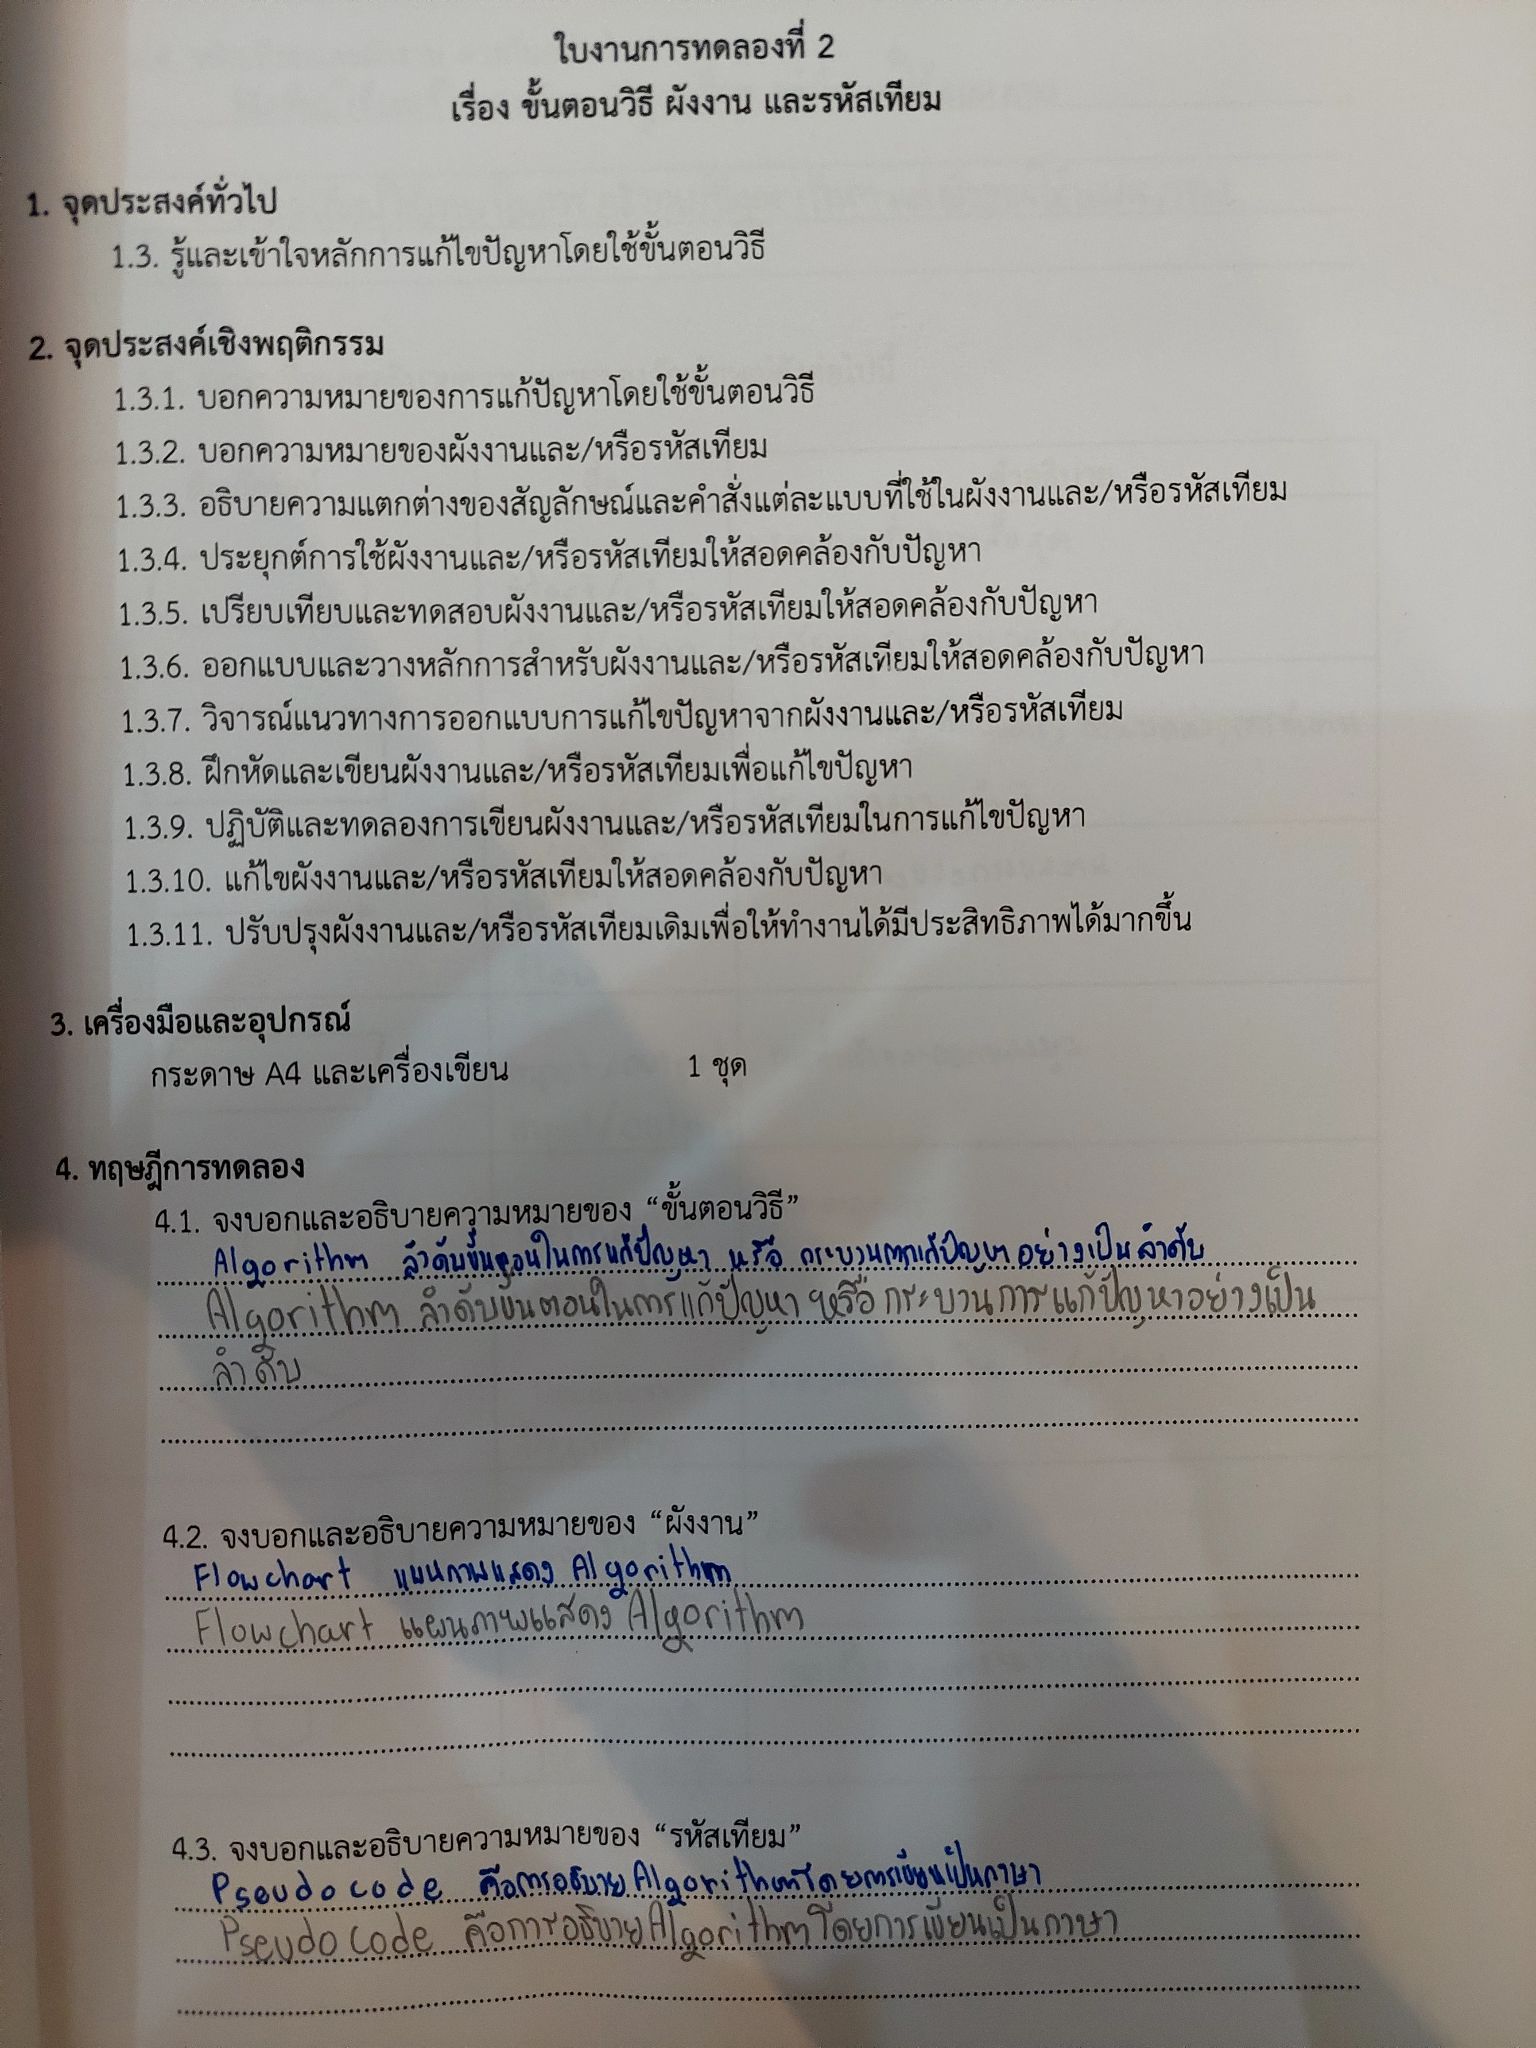 ใบงานการทดลองที่ 2
เรื่อง ขั้นตอนวิธี ผังงาน และรหัสเทียม
1. จุดประสงค์ทั่วไป
1.3. รู้และเข้าใจหลักการแก้ไขปัญหาโดยใช้ขั้นตอนวิธี
2. จุดประสงค์เชิงพฤติกรรม
1.3.1. บอกความหมายของการแก้ปัญหาโดยใช้ขั้นตอนวิธี
1.3.2. บอกความหมายของผังงานและ/หรือรหัสเทียม
1.3.3. อธิบายความแตกต่างของสัญลักษณ์และคำสั่งแต่ละแบบที่ใช้ในผังงานและ/หรือรหัสเทียม
1.3.4. ประยุกต์การใช้ผังงานและ/หรือรหัสเทียมให้สอดคล้องกับปัญหา
1.3.5. เปรียบเทียบและทดสอบผังงานและ/หรือรหัสเทียมให้สอดคล้องกับปัญหา
1.3.6. ออกแบบและวางหลักการสำหรับผังงานและ/หรือรหัสเทียมให้สอดคล้องกับปัญหา
1.3.7. วิจารณ์แนวทางการออกแบบการแก้ไขปัญหาจากผังงานและ/หรือรหัสเทียม
1.3.8. ฝึกหัดและเขียนผังงานและ/หรือรหัสเทียมเพื่อแก้ไขปัญหา
1.3.9. ปฏิบัติและทดลองการเขียนผังงานและ/หรือรหัสเทียมในการแก้ไขปัญหา
1.3.10. แก้ไขผังงานและ/หรือรหัสเทียมให้สอดคล้องกับปัญหา
1.3.11. ปรับปรุงผังงานและ/หรือรหัสเทียมเดิมเพื่อให้ทำงานได้มีประสิทธิภาพได้มากขึ้น
3. เครื่องมือและอุปกรณ์
กระดาษ A4 และเครื่องเขียน 1 ชุด
4. ทฤษฎีการทดลอง
4.1. จงบอกและอธิบายความหมายของ “ขั้นตอนวิธี”
Algorithm ลำดับขั้นตอนในการแก้ปัญหา หรือ กระบวนการแก้ปัญหาอย่างเป็นลำดับ
Algorithm ลำดับขั้นตอนในการแก้ปัญหา หรือ กระบวนการแก้ปัญหาอย่างเป็น
ลำดับ
4.2. จงบอกและอธิบายความหมายของ “ผังงาน”
Flowchart แผนภาพแสดง Algorithm
Flowchart แผนภาพแสดง Algorithm
4.3. จงบอกและอธิบายความหมายของ “รหัสเทียม”
Pseudocode คือการอธิบาย Algorithm โดยการเขียนเป็นภาษา
Pseudocode คือการอธิบาย Algorithm โดยการเขียนเป็นภาษา